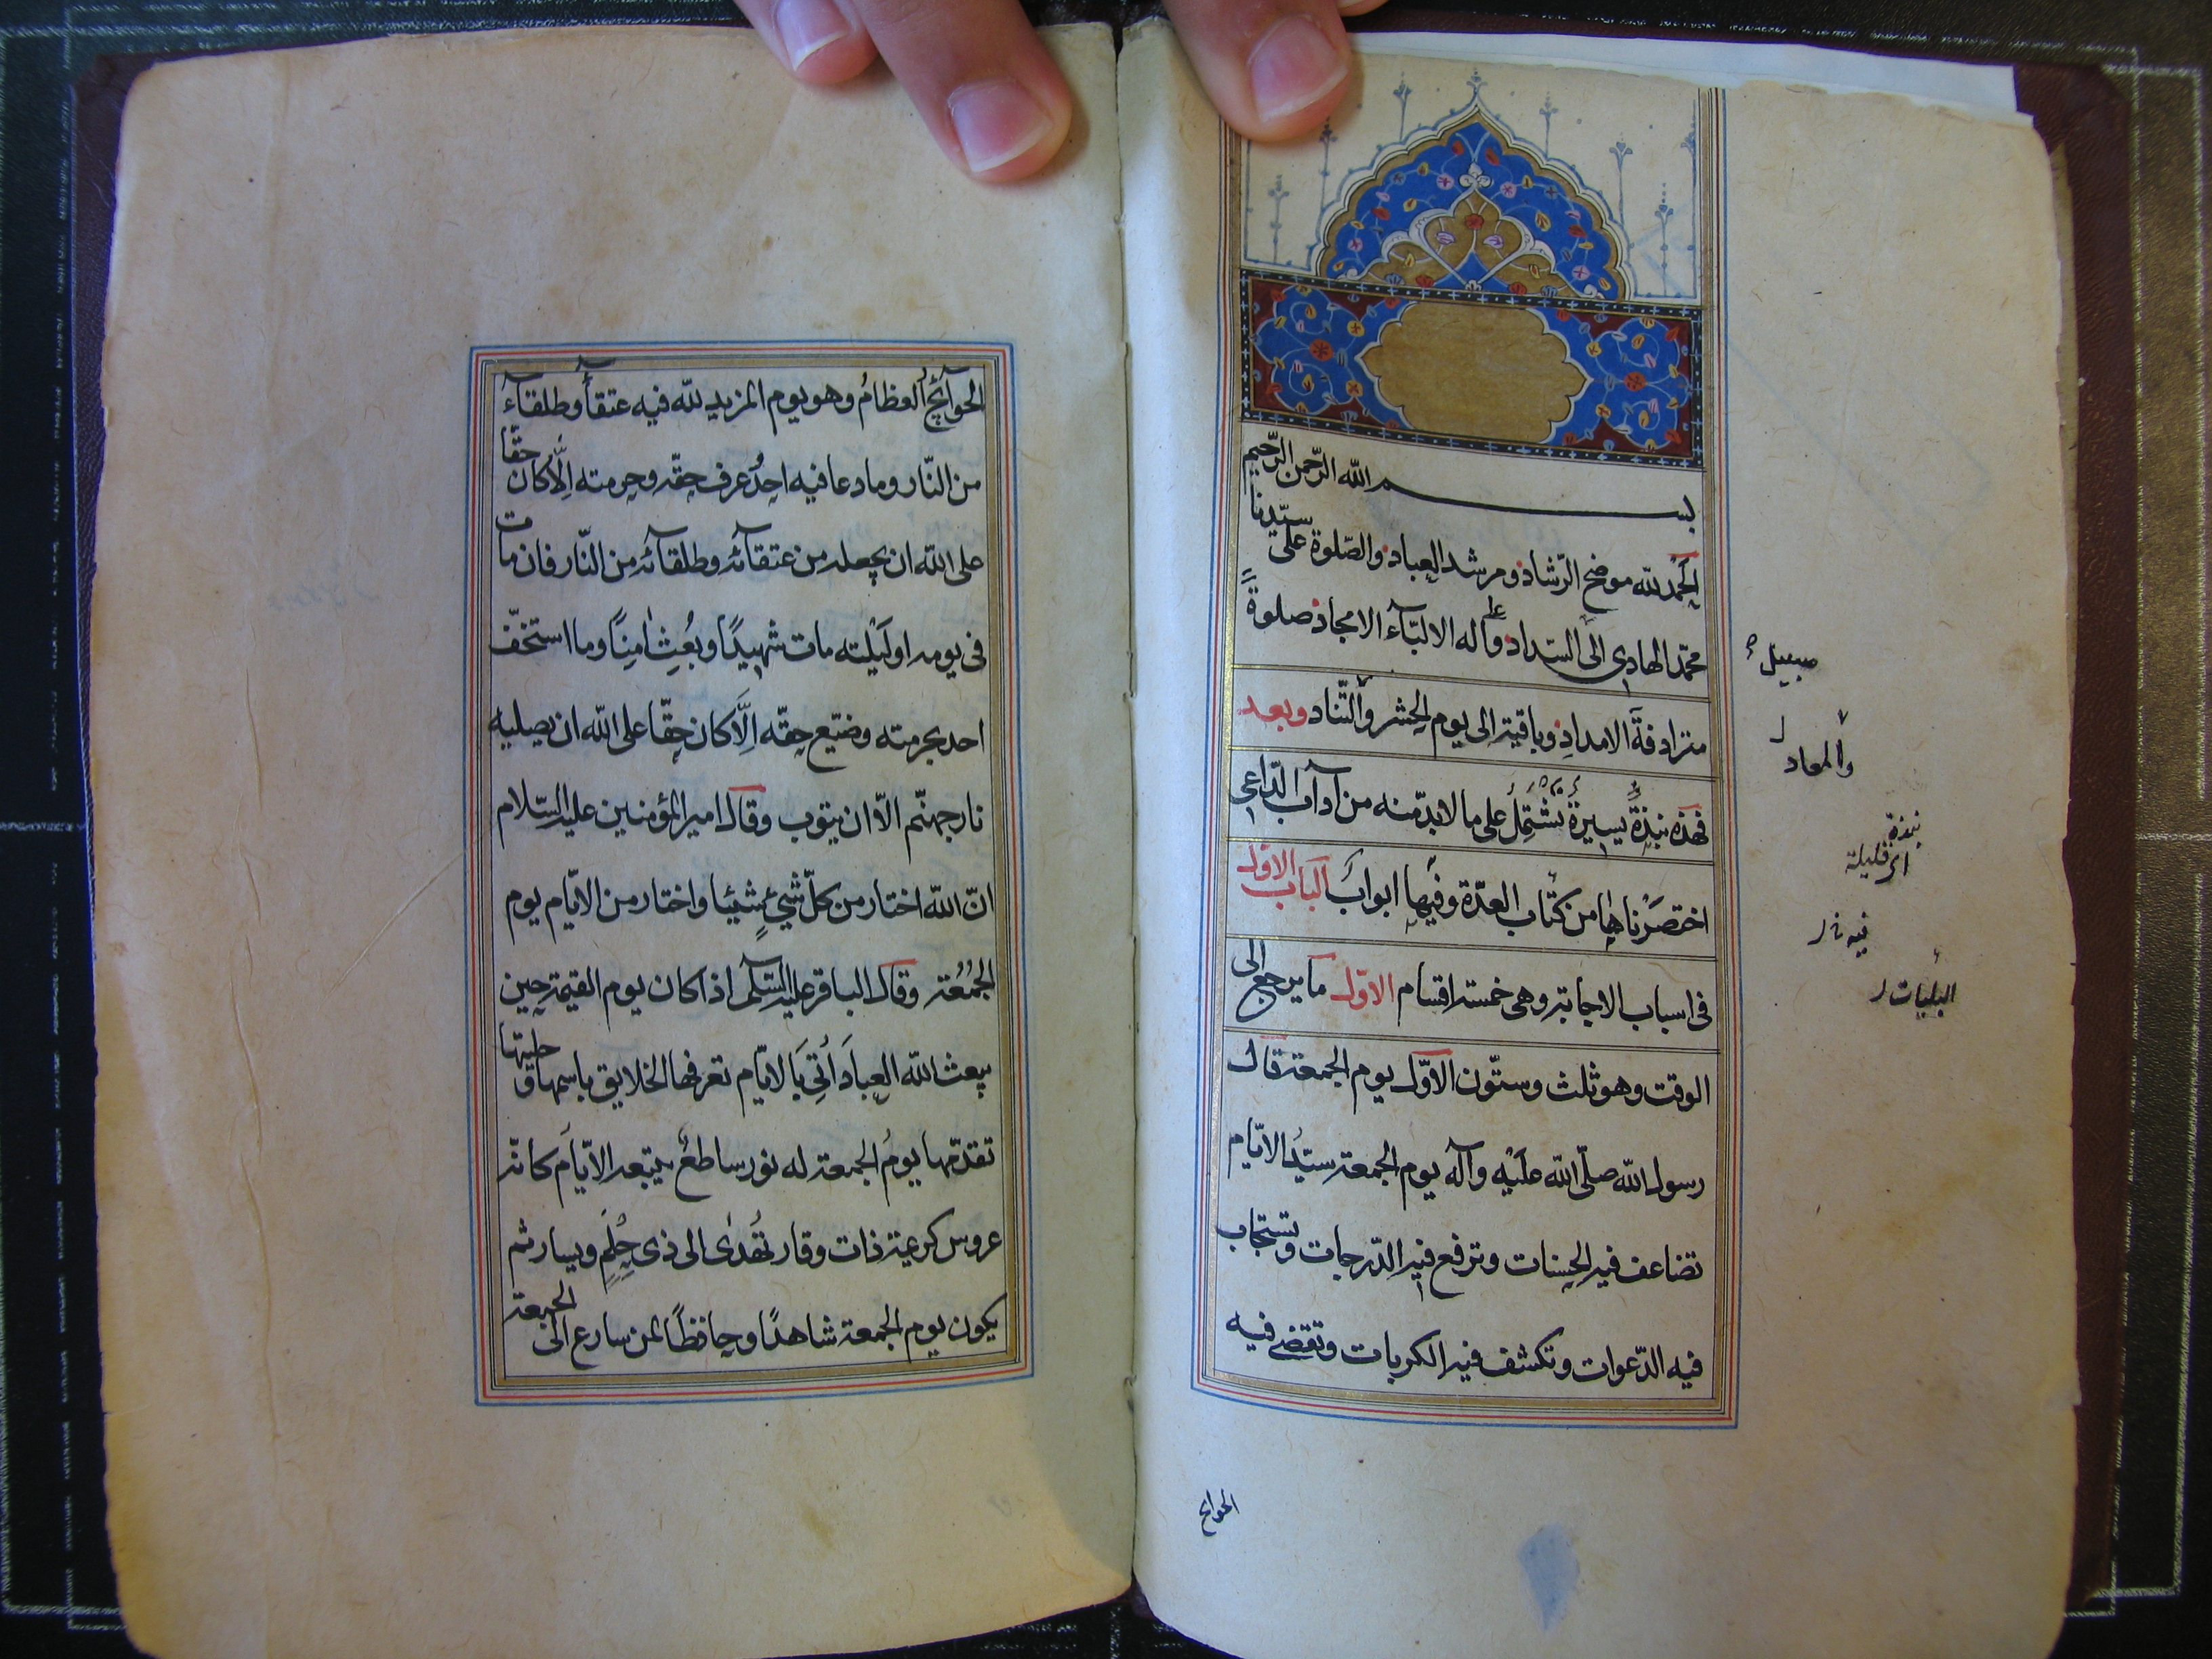 بســـم الله الرّحمن الرّحيم
الحَمْد لله موضح الرّشاد ومرشد العباد والصّلوة على سيّدنا
محمّد الهادى الى السّداد وآله الالبّآء الامجاد صلوةً
مترادفةَ الامدادِ وباقية الى يوم الحشر والتّناد وبعد
فهذه نبذةٌ يسيرةٌ تشتمل على ما لابدّ منه من آداب الدّاعى
اختصَرْناها من كتاب العدّة وفيها ابوابٌ الباب الاوّل
فى اسباب الاجابة وهى خمسة اقسام الاوّل ما يرجع الى
الوقت وهو ثلث وستّون الاوّل يوم الجمعة قال
رسول الله صلّى الله علَيْه وآله يوم الجمعة سيّدُ الايّام
تضاعف فيه الحسنات وترفع فيه الدّرجات وتستجاب
فيه الدّعوات وتكشف فيه الكربات وتقضى فيه
الحوائج
والمعاد
نبذة
اى قليلة
الحوآئج العظامُ وهو يوم المزيد لله فيه عتقآء وطلقآء
من النّار وما دعا فيه احدٌ عرف حقّه وحرمته اِلّا كان حقّا
على الله ان يجعله من عتقآئه وطلقآئه من النّار فان مات
فى يومه او لَيْلته مات شهيدًا وبُعِث اٰمِنًا وما استخفّ
احد بحرمته وضيّع حقّه اِلَّا كان حقّا على الله ان يصليه
نار جهنّم الّا ان يتوب وقال امير المؤمنين عليه السّلام
انّ الله اختار من كلّ شىءٍ شيئا واختار من الايّام يوم
الجُمُعة وقال الباقر عليه السّلم اذا كان يوم القيمة حين
يبعث الله العبادَ اُتِىَ بالايّام تعرفها الخلايق باسمها وحليتها
تقدّمها يومُ الجمعة له نور ساطعٌ يتبعه الايّام كانّه
عروس كريمة ذات وقار تُهْدٰى الى ذى حُلْمٍ ويسار ثم
يكون يوم الجمعة شاهدًا وحافظًا لمن سارع الى الجمعة